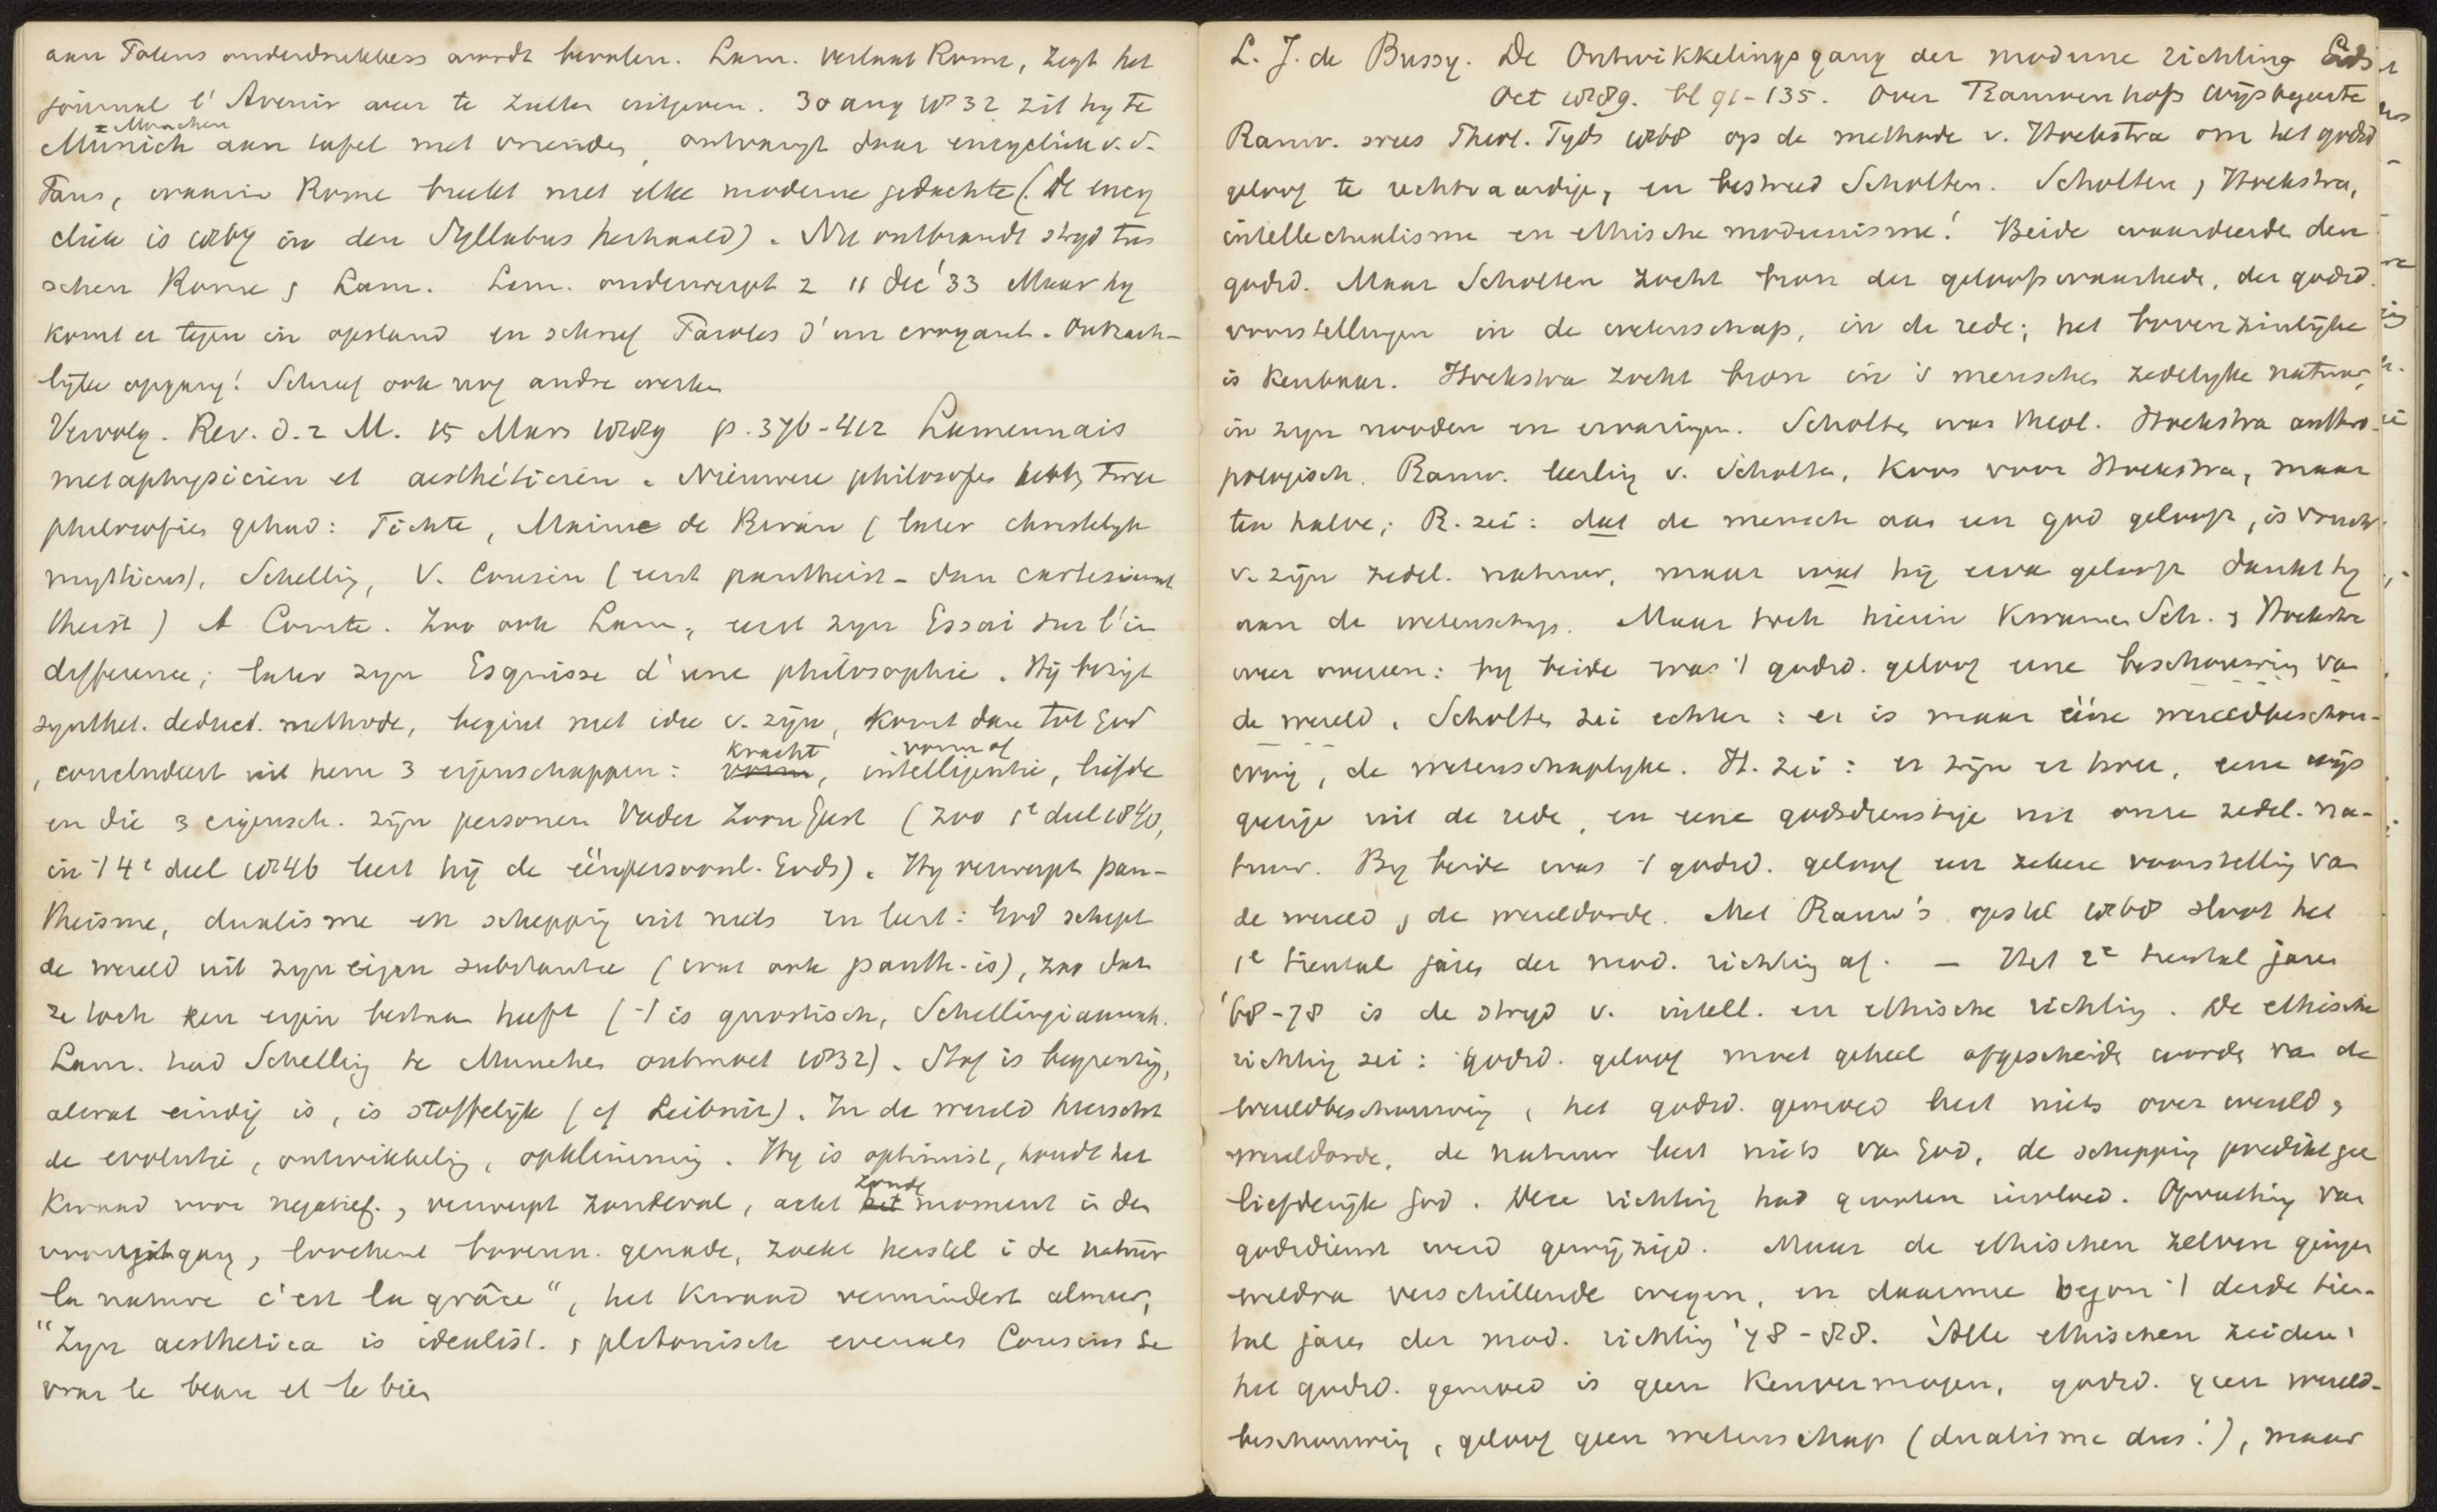 aan Polens onderdrukkers wordt bevolen. Lam. verlaat Rome, zegt het
journal l'Avenir weer te zullen uitgeven. 30 aug 1832 zit hy te
= Munchen
Münich aan tafel met vrienden, ontvangt daar encycliek v.d.
Paus, waarin Rome breekt met elke moderne gedachte (. De ency
cliek is 1864 in den Syllabus herhaald). Nu ontbrandt stryd tus
schen Rome & Lam. Lam. onderwerpt z 11 dec '33 Maar hy
komt er tegen in opstand en schreef Paroles d'un croyant. Ontzach-
lyke opgang! Schreef ook nog andre werken
Vervolg. Rev. d. 2 M. 15 Mars 1889 p. 376-412 Lamennais
metaphysicien et aesthéticien. Nieuwere philosofen hebben twee
philosofieën gehad: Fichte, Maine de Biran (later christelyk
mysticus), Schelling, V. Cousin (eerst pantheist - dan cartesiaansch
theist) A Comte. Zoo ook Lam., eerst zyn Essai sur l'in
difference; later zyn Esquisse d'une philosophie. Hij bezigt
synthet. deduct. methode, begint met idee v. zijn, komt dan tot God
kracht vorm of
, concludeert uit hem 3 eigenschappen: vorm, intelligentie, liefde
en die 3 eigensch. zijn personen Vader Zoon Geest (zoo 1e deel 1840,
in 't 4e deel 1846 leert hij de éénpersoonl. Gods). Hy verwerpt pan-
theisme, dualisme en schepping uit niets en leert: God schept
de wereld uit zyn eigen substantie (wat ook panth. is), zoo dat
ze toch een eigen bestaan heeft ('t is gnostisch, Schellingiaansch.
Lam. had Schelling te Munchen ontmoet 1832). Stof is begrenzing,
alwat eindig is, is stoffelijk (cf Leibniz). In de wereld heerscht
de evolutie, ontwikkeling, opklimming. Hy is optimist, houdt het
zonde
kwaad voor negatief, verwerpt zondeval, acht het moment in den
vooruitgang, loochent bovenn. genade, zoekt herstel i de natuur
la nature c'est la grâce", het kwaad vermindert alweer,
"Zyn aesthetica is idealist. & platonisch evenals Cousins Le
vrai le beau et le bien
L. J. de Bussy. De Ontwikkelingsgang der moderne richting Gids
Oct 1889. bl 91-135. Over Rauwenhoffs Wijsbegeerte
Rauw. wees Theol. Tyds 1868 op de methode v. Hoekstra om het godsd
geloof te rechtvaardigen, en bestreed Scholten. Scholten & Hoekstra,
intellectualisme en ethische modernisme! Beide waardeerden den
godsd. Maar Scholten zocht bron der geloofswaarheden, der godsd.
voorstellingen in de wetenschap, in de rede; het bovenzinlyke
is kenbaar. Hoekstra zocht bron in 's menschen zedelyke natuur,
in zyn nooden en ervaringen. Scholten was theol. Hoekstra anthro-
pologisch. Rauw. leerling v. Scholten, koos voor Hoekstra, maar
ten halve; R. zei: dat de mensch aan een god gelooft, is vrucht
v. zijn zedel. natuur, maar wat hij ervan gelooft dankt hy
aan de wetenschap. Maar toch hierin kwamen Sch. & Hoekstra
weer overeen: by beide was 't godsd. geloof eene beschouwing van
de wereld. Scholten zei echter: er is maar ééne wereldbeschou-
wing, de wetenschaplyke. H. zei: er zijn er twee, eene wijs
geerige uit de rede, en eene godsdienstige uit onze zedel. na-
tuur. By beide was 't godsd. geloof een zekere voorstelling van
de wereld & de wereldorde. Met Rauw's opstel 1868 sloot het
1e tiental jaren der mod. richting af. — Het 2e tiental jaren
'68-78 is de stryd v. intell. en ethische richting. De ethische
richting zei: godsd. geloof moet geheel afgescheiden worden van de
wereldbeschouwing, het godsd. gemoed leert niets over wereld &
wereldorde, de natuur leert niets van God, de schepping predikt gee
liefderijke God. Deze richting had grooten invloed. Opvatting van
godsdienst werd gewijzigd. Maar de ethischen zelven gingen
weldra verschillende wegen, en daarmee begon 't derde tien-
tal jaren der mod. richting '78-88. Alle ethischen zeiden:
het godsd. gemoed is geen kenvermogen, godsd. geen wereld-
beschouwing, geloof geen wetenschap (dualisme dus!), maar